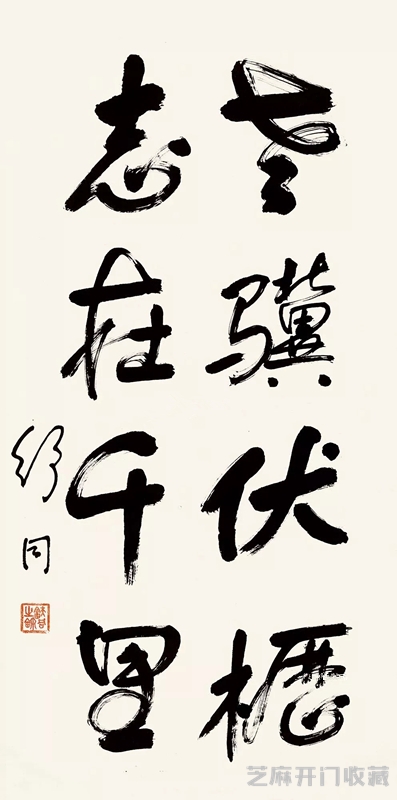 老骥伏枥
志在千里
舒同
芝麻开门收藏